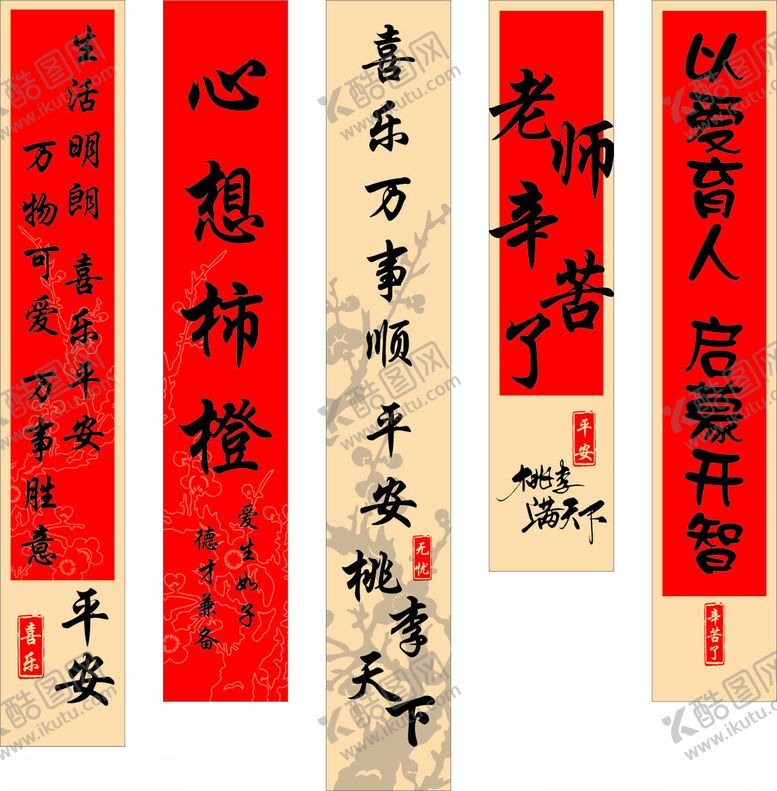 生活明朗 喜乐平安
万物可爱 万事胜意
平安
喜乐
心想柿橙
爱生如子
德才兼备
喜乐万事顺 平安
无忧
桃李天下
老师辛苦了
平安
桃李
满天下
以爱育人 启蒙开智
辛苦了
酷图网
www.ikutu.com